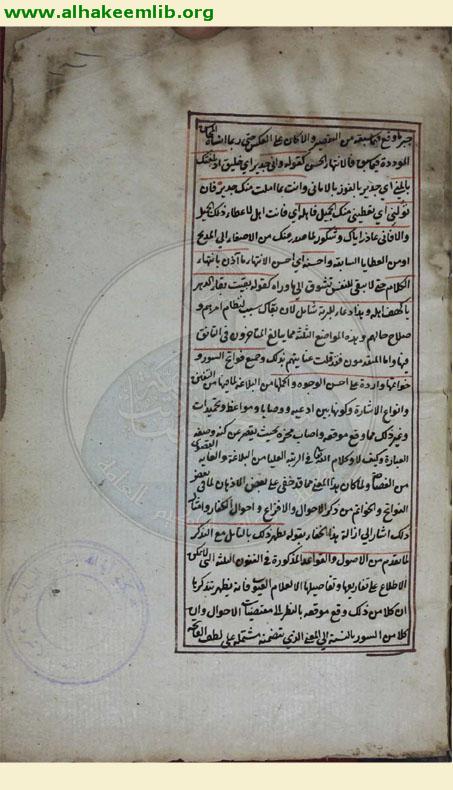 www.alhakeemlib.org
جبر ما وقع فيما سبقه من التقصير والا كان على العكس حتى ربما انساه المحاسن
الموردة فيما سبق فالانتهاء الحسن كقوله واني جدير اي خليق اذ بلغتك
بالمنى اي جدير بالفوز بالاماني وانت بما املت منك جدير فان
تولني اي تعطيني منك الجميل فاهله اي فانت اهل لاعطاء ذلك الجميل
والا فاني عاذر اياك وشكور لما صدر منك من الاصغاء الى المديح
او من العطايا السابقة واحسنه اي احسن الانتهاء ما آذن بانتهاء
الكلام حتى لا يبقى للنفس تشوق الى ما وراءه كقوله بقيت بقاء الدهر
يا كهف اهله وهذا دعاء للبرية شامل لان بقاك سبب لنظام امرهم و
صلاح حالهم وهذه المواضع الثلثة مما يبالغ المتاخرون في التانق
فيها واما المتقدمون فقد قلت عنايتهم بذلك وجميع فواتح السور و
خواتمها واردة على احسن الوجوه واكملها من البلاغة لما فيها من التفنن
وانواع الاشارة وكونها بين ادعيه ووصايا ومواعظ وتحميدات
وغير ذلك مما وقع موقعه واصاب محزه بحيث يقصر عن كنه وصفه
العبارة وكيف لا وكلام الله في الرتبة العليا من البلاغة والغاية القصوى
من الفصاحة ولما كان هذا المعنى مما قد خفي على بعض الاذهان لما في بعض
الفواتح والخواتم من ذكر الاحوال والافزاع و احوال الكفار وامثال
ذلك اشار الى ازالة هذا الخفاء بقوله يظهر ذلك بالتامل مع التذكر
لما تقدم من الاصول والقواعد المذكورة في الفنون الثلثة التي لا يمكن
الاطلاع على تفاريعها وتفاصيلها الا لعلام الغيوب فانه يظهر بتذكرها
ان كلا من ذلك وقع موقعه بالنظر الى مقتضيات الاحوال وان
كلا من السور بالنسبة الى المعنى الذي يتضمنه مشتملة على لطف الفاتحة